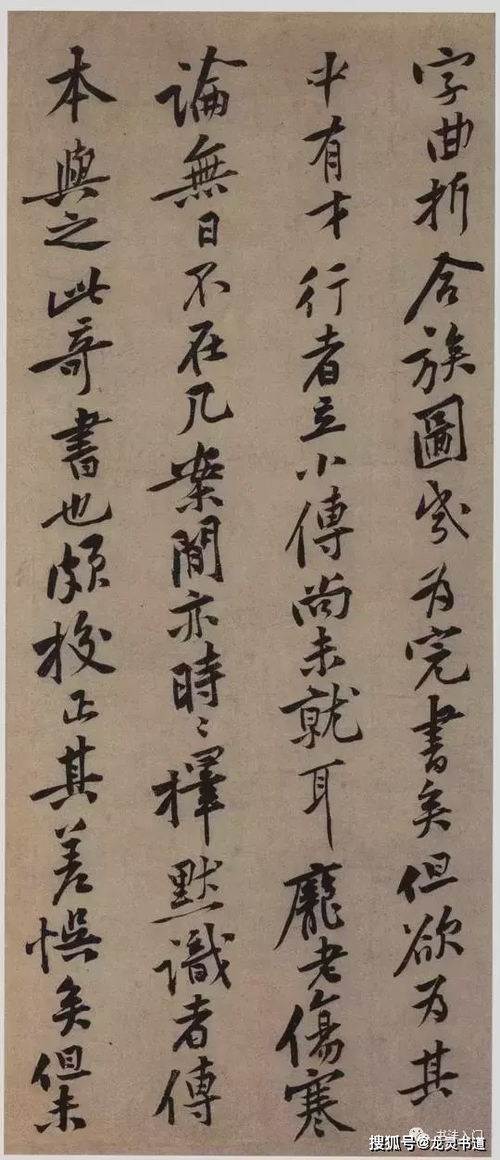 字曲折合族圖岁为完書矣但欲为其
中有才行者立小傳尚未就耳龐老傷寒
論無日不在几案間亦時〻擇默識者傳
本與之此奇書也頗校正其差悮矣但未
书法入门
搜狐号@龙灵书道